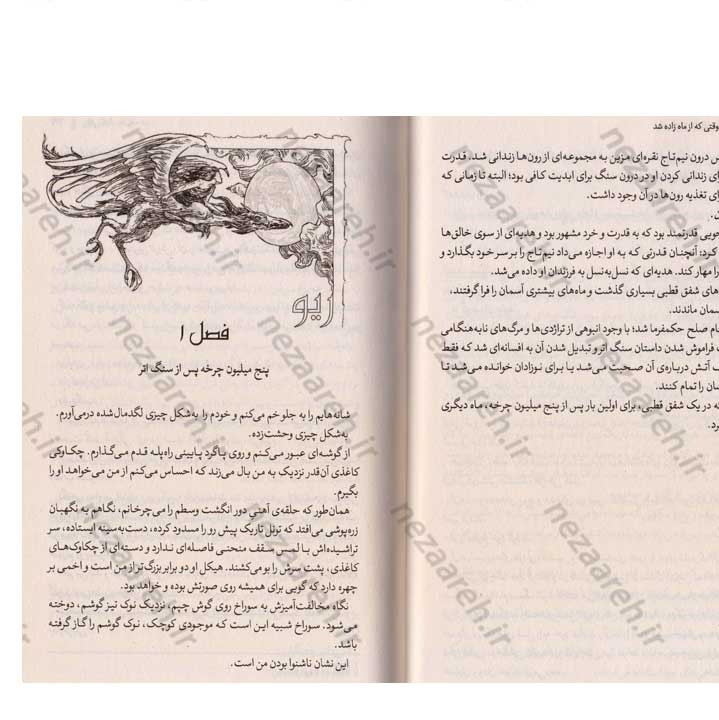 وقتی که از ماه زاده شد
درون نیم‌تاج نقره‌ای مزین به مجموعه‌ای از رون‌ها زندانی شد. قدرت
زندانی کردن او در درون سنگ برای ابدیت کافی بود؛ البته تا زمانی که
تغذیه رون‌ها در آن وجود داشت.
جویی قدرتمند بود که به قدرت و خرد مشهور بود و هدیه‌ای از سوی خالق‌ها
کرد؛ آنچنان قدرتی که به او اجازه می‌داد نیم‌تاج را بر سر خود بگذارد و
را مهار کند. هدیه‌ای که نسل‌به‌نسل به فرزندان او داده می‌شد.
های شفق قطبی بسیاری گذشت و ماه‌های بیشتری آسمان را فرا گرفتند،
سمان ماندند.
صلح حکمفرما شد؛ با وجود انبوهی از تراژدی‌ها و مرگ‌های نابه‌هنگامی
فراموش شدن داستان سنگ اتر و تبدیل شدن آن به افسانه‌ای شد که فقط
آتش درباره‌ی آن صحبت می‌شد یا برای نوزادان خوانده می‌شد تا
را تمام کنند.
که در یک شفق قطبی، برای اولین بار پس از پنج میلیون چرخه، ماه دیگری
ریو
فصل ۱
پنج میلیون چرخه پس از سنگ اتر
شانه‌هایم را به جلو خم می‌کنم و خودم را به‌شکل چیزی لگدمال‌شده درمی‌آورم.
به‌شکل چیزی وحشت‌زده.
از گوشه‌ای عبور می‌کنم و روی پاگرد پایینی راه‌پله قدم می‌گذارم. چکاوکی
کاغذی آن‌قدر نزدیک به من بال می‌زند که احساس می‌کنم از من می‌خواهد او را
بگیرم.
همان‌طور که حلقه‌ی آهنی دور انگشت وسطم را می‌چرخانم، نگاهم به نگهبان
زره‌پوشی می‌افتد که تونل تاریک پیش رو را مسدود کرده، دست‌به‌سینه ایستاده، سر
تراشیده‌اش با لمس سقف منحنی فاصله‌ای ندارد و دسته‌ای از چکاوک‌های
کاغذی، پشت سرش را بو می‌کشند. هیکل او دو برابر بزرگ‌تر از من است و اخمی بر
چهره دارد که گویی برای همیشه روی صورتش بوده و خواهد بود.
نگاه مخالفت‌آمیزش به سوراخ روی گوش چپم، نزدیک نوک تیز گوشم، دوخته
می‌شود. سوراخ شبیه این است که موجودی کوچک، نوک گوشم را گاز گرفته
باشد.
این نشان ناشنوا بودن من است.
nezaareh.ir
nezaareh.ir
nezaareh.ir
nezaareh.ir
nezaareh.ir
nezaareh.ir